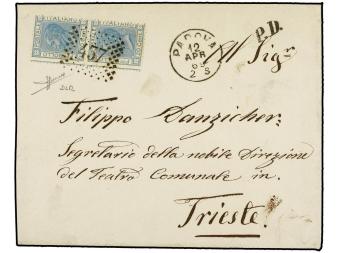 ITALIANO
ITALIANO
157
PADOVA
12
APR
2 S
P.D.
All Sigr
Filippo Danzicher
Segretario della nobile Direzione
del Teatro Comunale in
Trieste